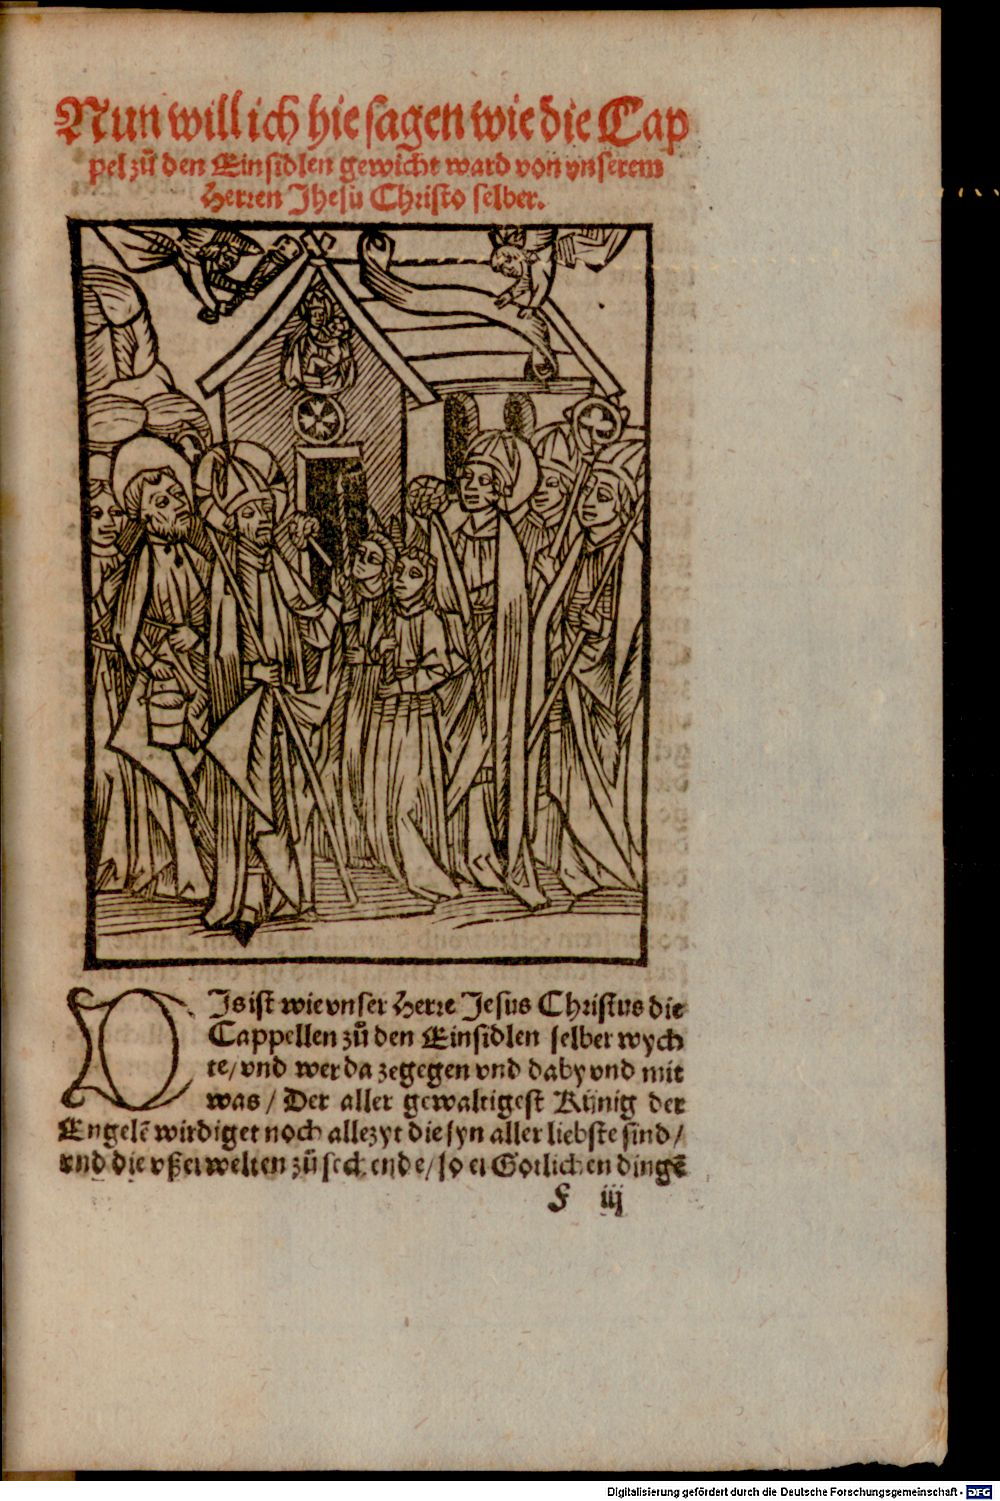 Nun will ich hie sagen wie die Cap
pel zů den Einsidlen gewicht ward von vnserem
Herren Jhesu Christo selber.
DJs ist wie vnser Herre Jesus Christus die
Cappellen zů den Einsidlen selber wych
te/ vnd wer da zegegen vnd daby vnd mit
was/ Der aller gewaltigest Künig der
Engelē wirdiget noch allezyt die syn aller liebste sind/
vnd die vßerwelten zů sechende/ so er Gotlichen dingē
F iij
Digitalisierung gefördert durch die Deutsche Forschungsgemeinschaft - DFG